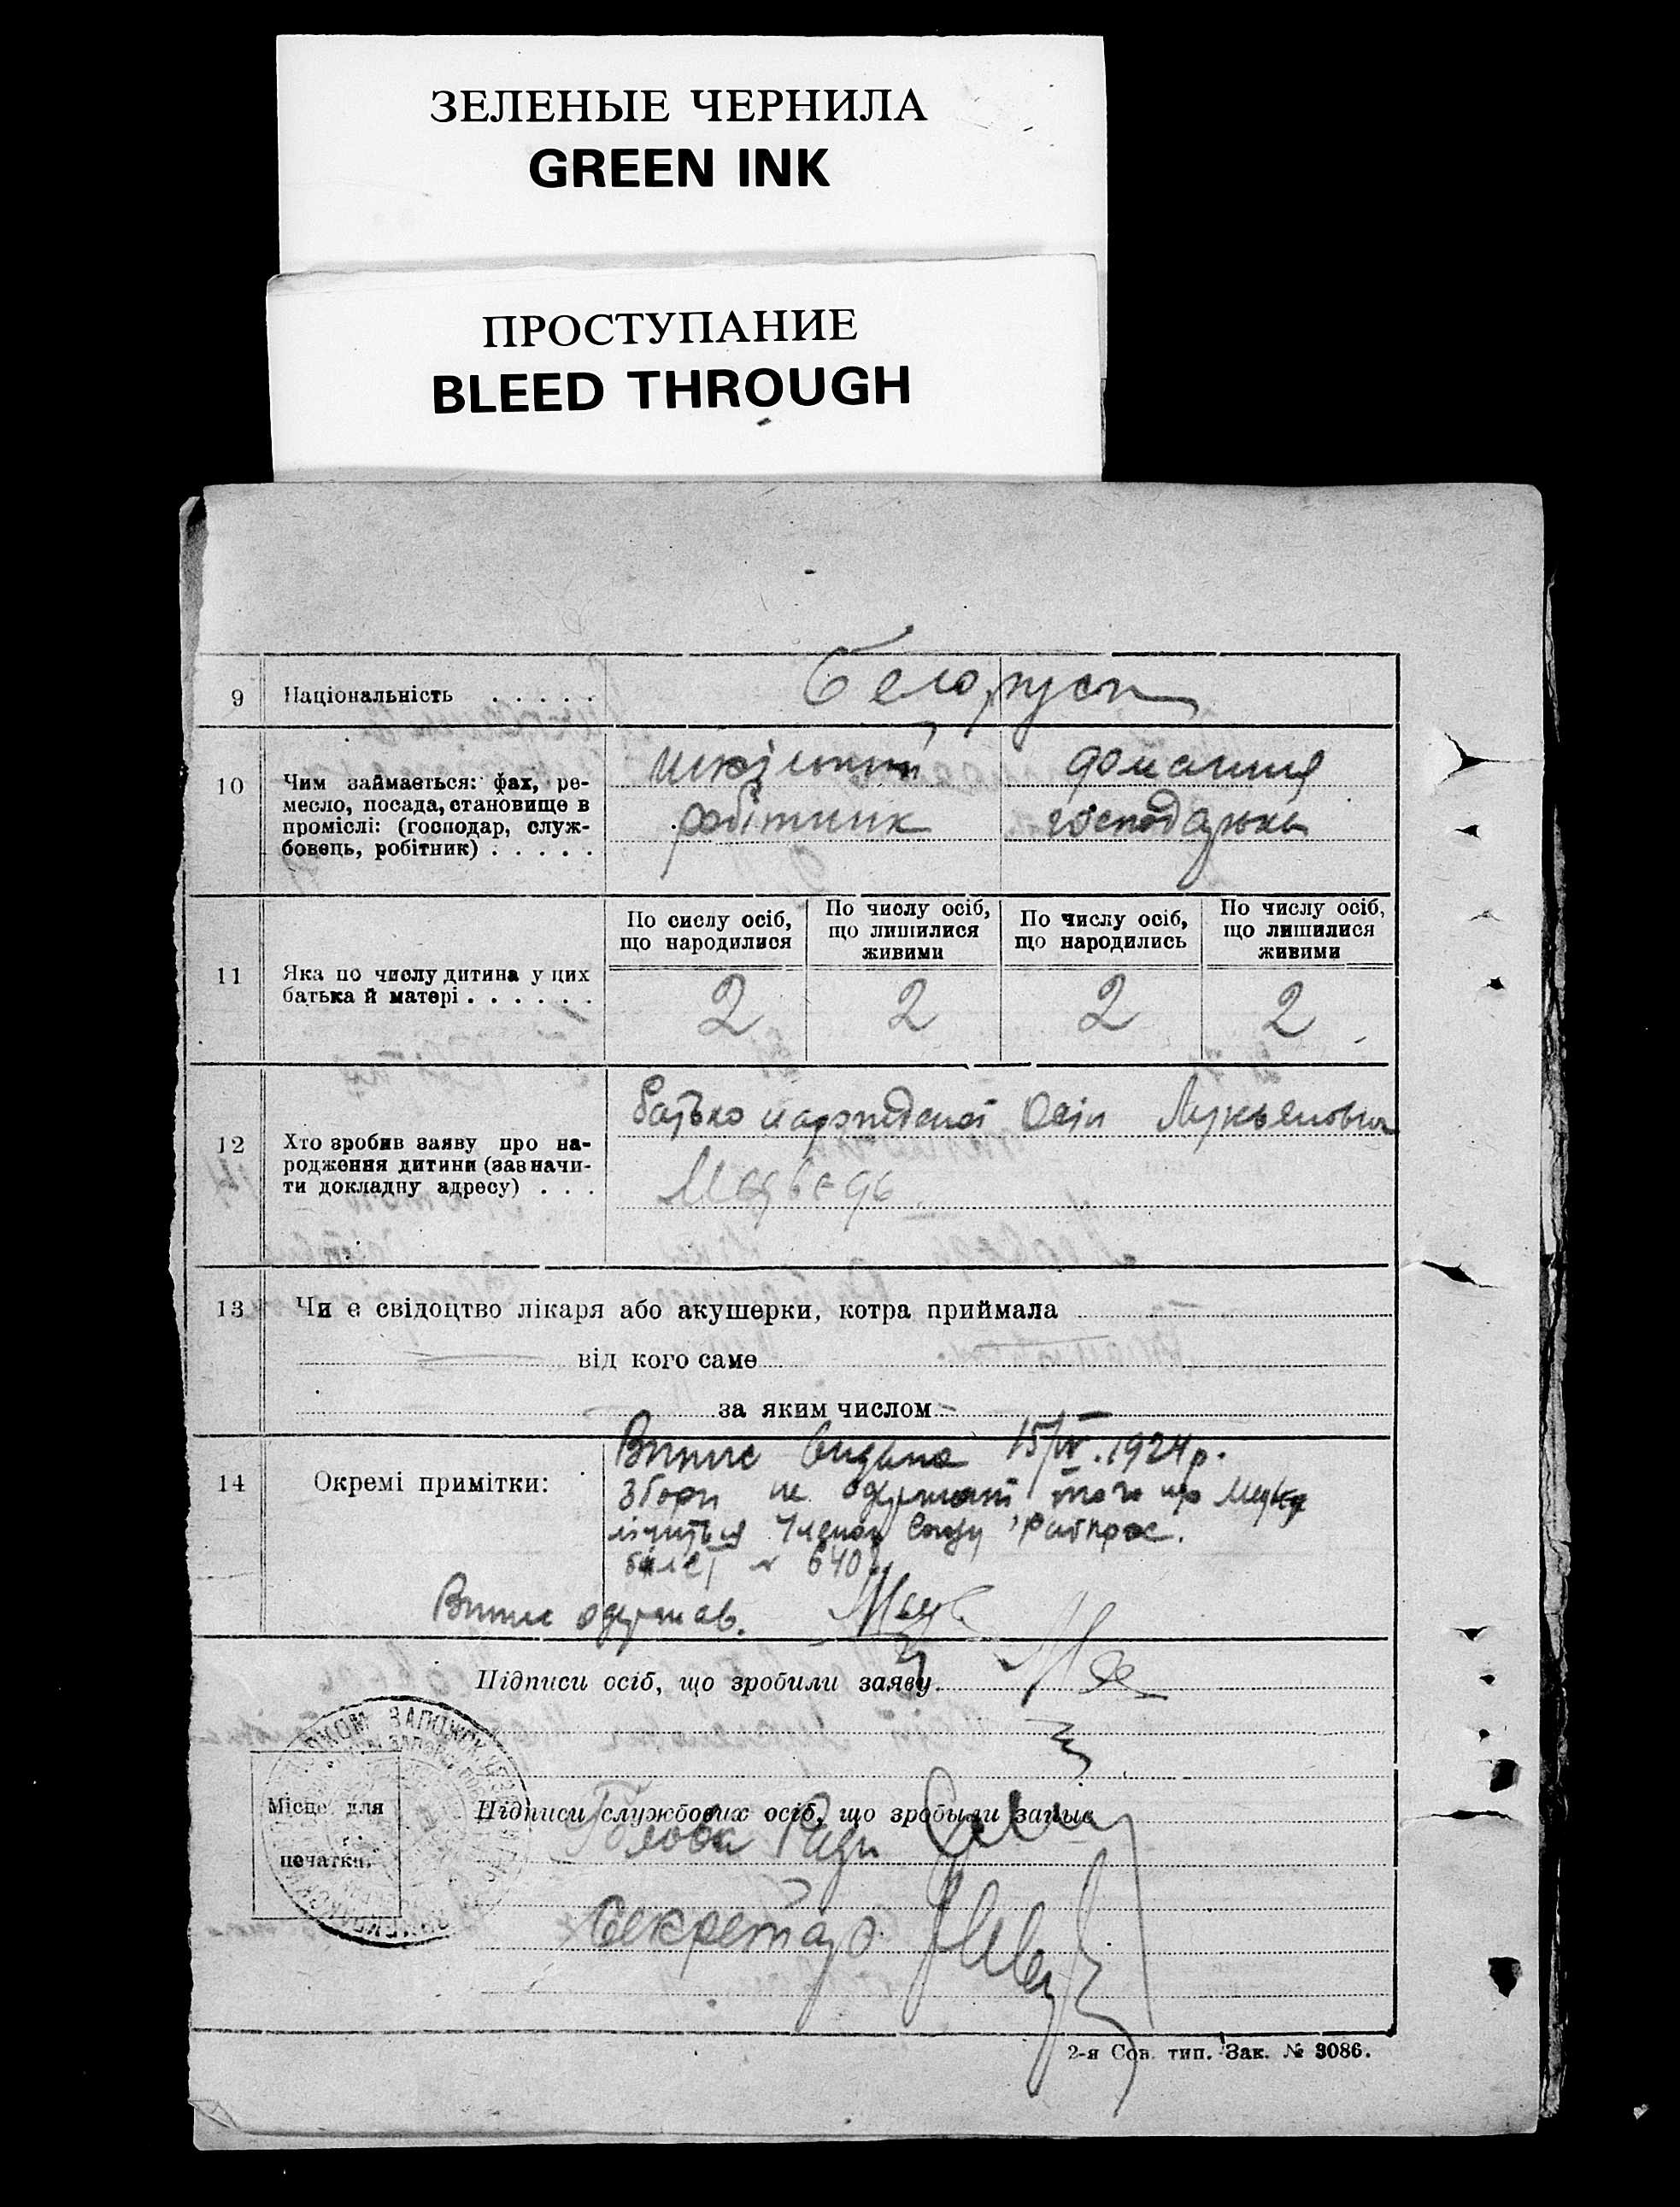 ЗЕЛЕНЫЕ ЧЕРНИЛА
GREEN INK
ПРОСТУПАНИЕ
BLEED THROUGH
9 Національність . . . . .
Чим займається: фах, ре-
10 месло, посада, становище в
проміслі: (господар, служ-
бовець, робітник) . . . . .
робітник
домашня
господарька
11 Яка по числу дитина у цих
батька й матері . . . . . .
По сислу осіб,
що народилися
По числу осіб,
що лишилися
живими
По числу осіб,
що народились
По числу осіб,
що лишилися
живими
2 2 2 2
12 Хто зробив заяву про на-
родження дитини (зазначи-
ти докладну адресу) . . .
батько Лукьянович
Медведь
13 Чи є свідоцтво лікаря або акушерки, котра приймала
від кого саме
за яким числом
14 Окремі примітки:
Випис видана 15/IV.1924 р.
збори не того що
лічиться членом союзу
білет № 640
Випис одержав.
Підписи осіб, що зробили заяву
Місце для
печатки.
Підписи службових осіб, що зробыли запыс
Голова Ради
Секретар
2-я Сов. тип. Зак. № 3086.